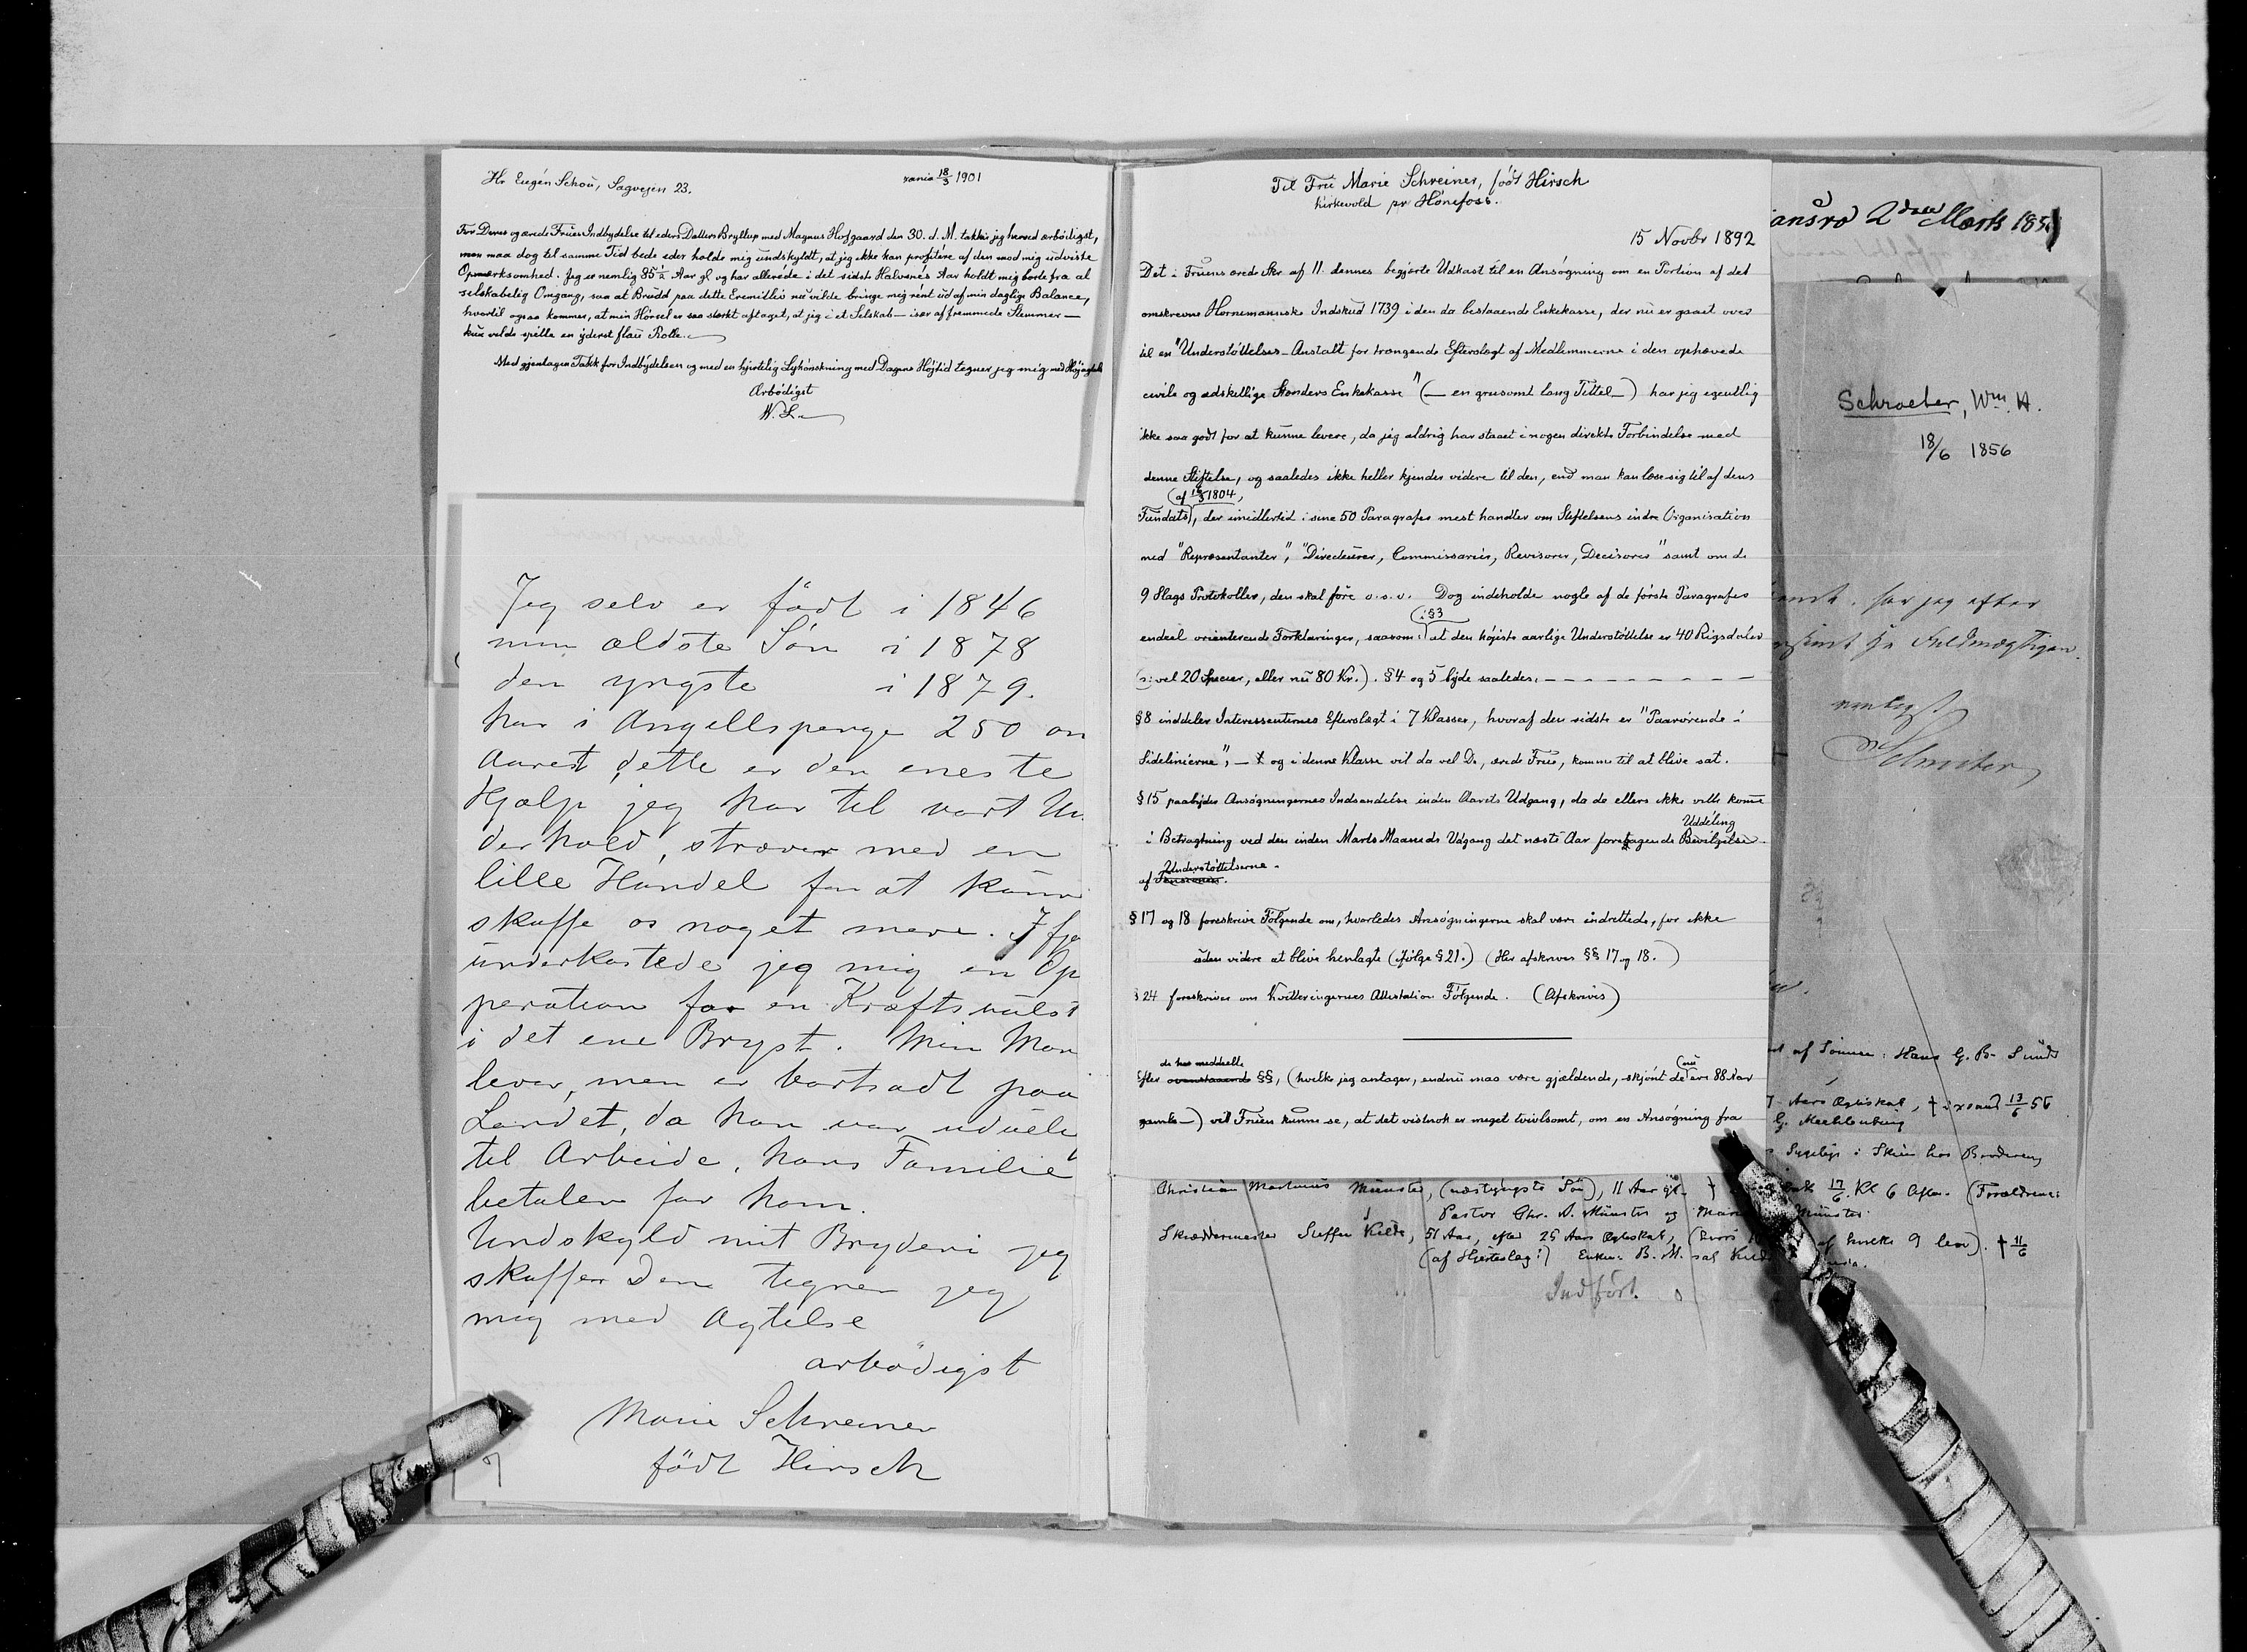 Hr Eugén Schou, Sagvejen 23.
xania 18/3 1901
For Deres og ærede Frues Indbydelse til eders Datters Bryllup med Magnus Hofgaard den 30. d. M. takker jeg herved ærbødigst,
men maa dog til samme Tid bede eder holde mig undskyldt, at jeg ikke kan profitére af den mod mig udviste
Opmærksomhed. Jeg er nemlig 85½ Aar gl. og har allerede i det sidste Aar holdt mig borte fra al
selskabelig Omgang, saa at Brudd paa dette Eremitliv nu vilde bringe mig rént ud af min daglige Balance,
hvortil ogsaa kommer, at min Hørsel er saa stærkt aftaget, at jeg i et Selskab — især af fremmede Stemmer —
kun vilde spille en yderst flau Rolle.
Med gjentagen Takk for Indbydelsen og med en hjertelig Lykønskning med Dagens Højtid tegner jeg mig med Højagtelse
Arbødigst
W. L.
Jeg selv er født i 1846
min ældste Søn i 1878
den yngste i 1879.
har i Angellspenge 250 om
Aaret, dette er den eneste
Hjælp jeg har til vort Un
derhold, stræver med en
lille Handel for at kunne
skaffe os noget mere. I fjo
underkastede jeg mig en Op
peration for en Kræftsvulst
i det ene Bryst. Min Man
lever, men er bortsadt paa
Landet, da han var uduele
til Arbeide, hans Familie
betaler for ham.
Undskyld mit Bryderi jeg
skaffer Dem tegner jeg
mig med Agtelse
ærbødigst
Marie Schreiner
født Hirsch
Til Fru Marie Schreiner, født Hirsch
Kirkevold pr Hønefoss.
15 Novbr 1892
Det i Fruens ærede Skr. af 11. dennes begjærte Udkast til en Ansøgning om en Portion af det
omskrevne Hornemannske Indskud 1739 i den da bestaaende Enkekasse, der nu er gaaet over
til en "Understøttelses-Anstalt for trængende Efterslægt af Medlemmerne i den ophævede
civile og adskillige Stænders Enkekasse" (— en grusomt lang Tittel —) har jeg egentlig
ikke saa godt for at kunne levere, da jeg aldrig har staaet i nogen direkte Forbindelse med
denne Stiftelse, og saaledes ikke heller kjender videre til den, end man kan læse sig til af dens
(af 1804,
Fundats, der imidlertid i sine 50 Paragrafer mest handler om Stiftelsens indre Organisation
med "Repræsentanter", "Directeurer, Commissarier, Revisorer, Decisorer" samt om de
9 Slags Protokoller, den skal føre o.s.v. Dog indeholde nogle af de første Paragrafer
(i §3
endeel orienterende Forklaringer, saasom: at den højeste aarlige Understøttelse er 40 Rigsdaler
(ɔ: vel 20 Specier, eller nu 80 Kr.). §4 og 5 lyde saaledes: - - - - - - - -
§8 inddeler Interessenternes Efterslægt i 7 Klasser, hvoraf den sidste er "Paarørende i
Sidelinierne", — og i denne Klasse vil da vel De, ærede Frue, komme til at blive sat.
§15 paabyder Ansøgningernes Indsendelse inden Aarets Udgang, da de ellers ikke ville komme
Uddeling
i Betragtning ved den inden Marts Maaneds Udgang det næste Aar foretagende Bevilgelse
Understøttelserne.
af Pensioner.
§17 og 18 foreskrive Følgende om, hvorledes Ansøgningerne skal være indrettede, for ikke
uden videre at blive henlagte (ifølge §21.) (Her afskreves §§ 17 og 18.)
§24 foreskriver om Kvitteringernes Attestation Følgende. (Afskrives)
de her meddeelte
Efter ovenstaaende §§, (hvilke jeg antager, endnu maa være gjældende, skjønt de (nu ere 88 Aar
gamle —) vil Fruen kunne se, at det vistnok er meget tvivlsomt, om en Ansøgning fra
Christian Martinus Münster, (næstyngste Søn), 11 Aar gl. † 17/6. Kl 6 Aften. (Forældrene:
Pastor Chr. A. Münster og Münster.
Skræddermester Steffen Kilde, 51 Aar, efter 25 Aars Ægteskab, af hvilke 9 leve). † 11/6
(af Hjerteslag!) Enken: B. M. sal Kilde
Indført.
ansrd 2den Marts 185
Schroeter, Wm. H.
18/6 1856
har jeg efter
Fuldmægtigen.
Schrøter
af Sønnen: Hans G. B. Sunds
7 Aars Ægteskab, † 13/6 56
G. Mechlenburg
Sygeleje i Skien hos Broderen